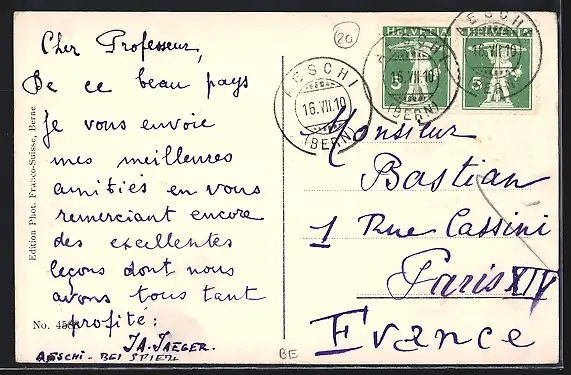 Cher Professeur,
De ce beau pays
je vous envoie
mes meilleures
amitiés en vous
remerciant encore
des excellentes
leçons dont nous
avons tous tant
profité:
JA. JAEGER.
AESCHI - BEI SPIEZ
Edition Phot. Franco-Suisse, Berne
No.
BE
20
HELVETIA
5
HELVETIA
5
AESCHI
16.VII.10
(BERN)
AESCHI
16.VII.10
(BERN)
AESCHI
16.VII.10
(BERN)
Monsieur
Bastian
1 Rue Cassini
Paris XIV
France